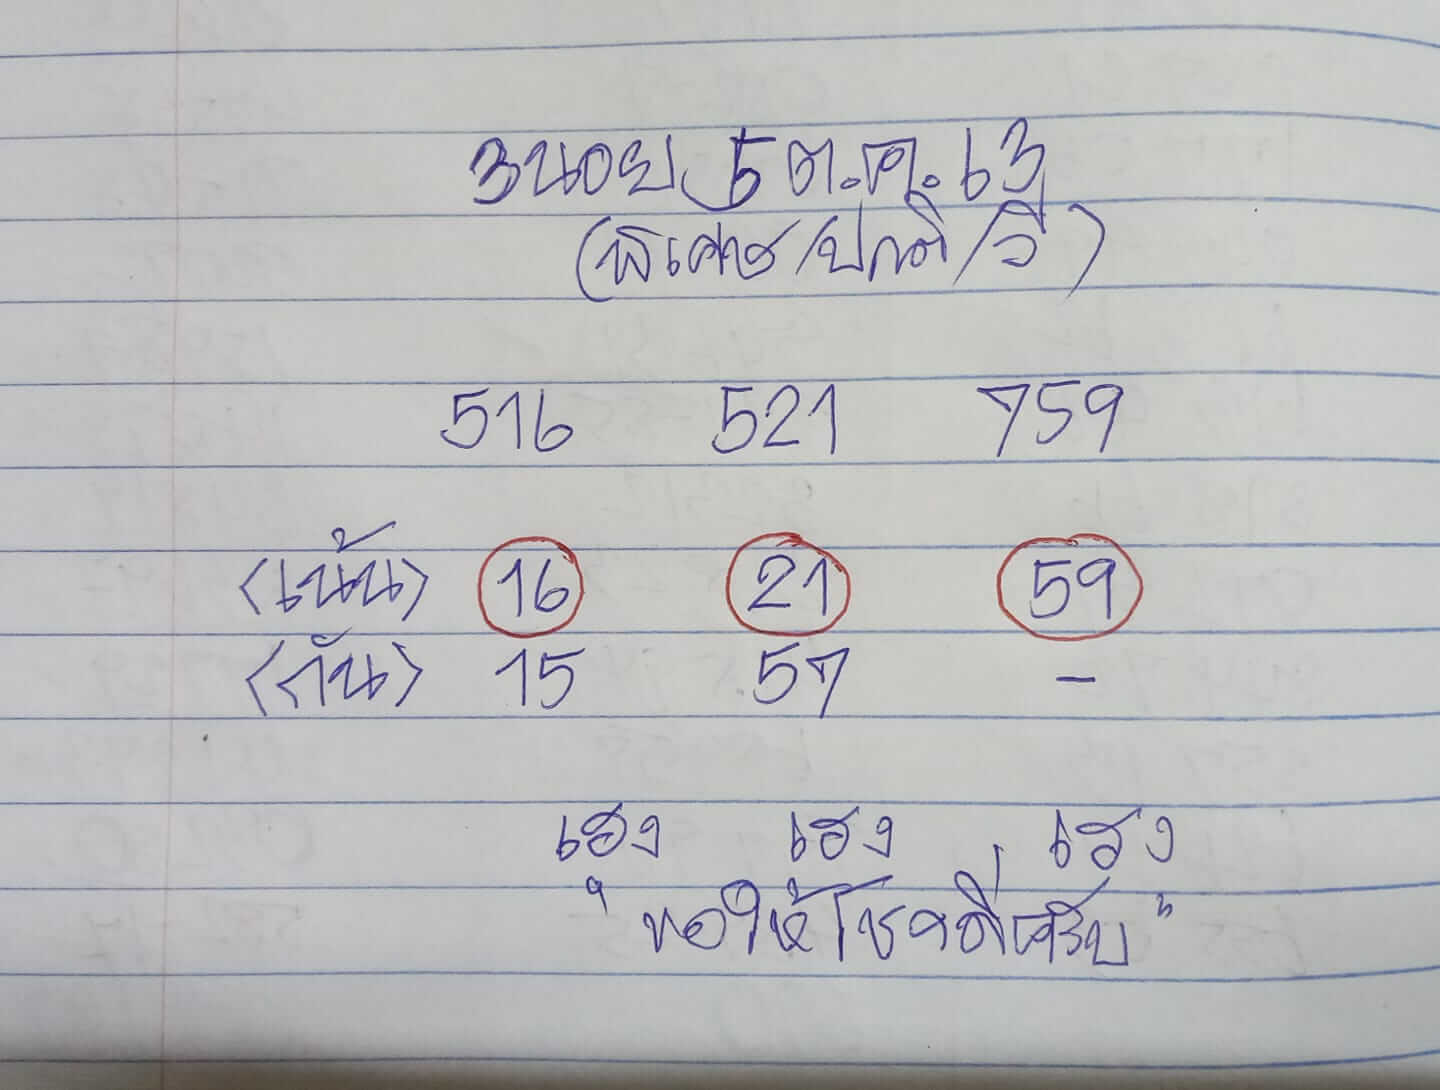 ฮานอย 5 ต.ค. 63
(พิเศษ/ปกติ/วี)
516 521 759
<เน้น> 16 21 59
<กัน> 15 57 -
เฮง เฮง เฮง
"ขอให้โชคดีครับ"